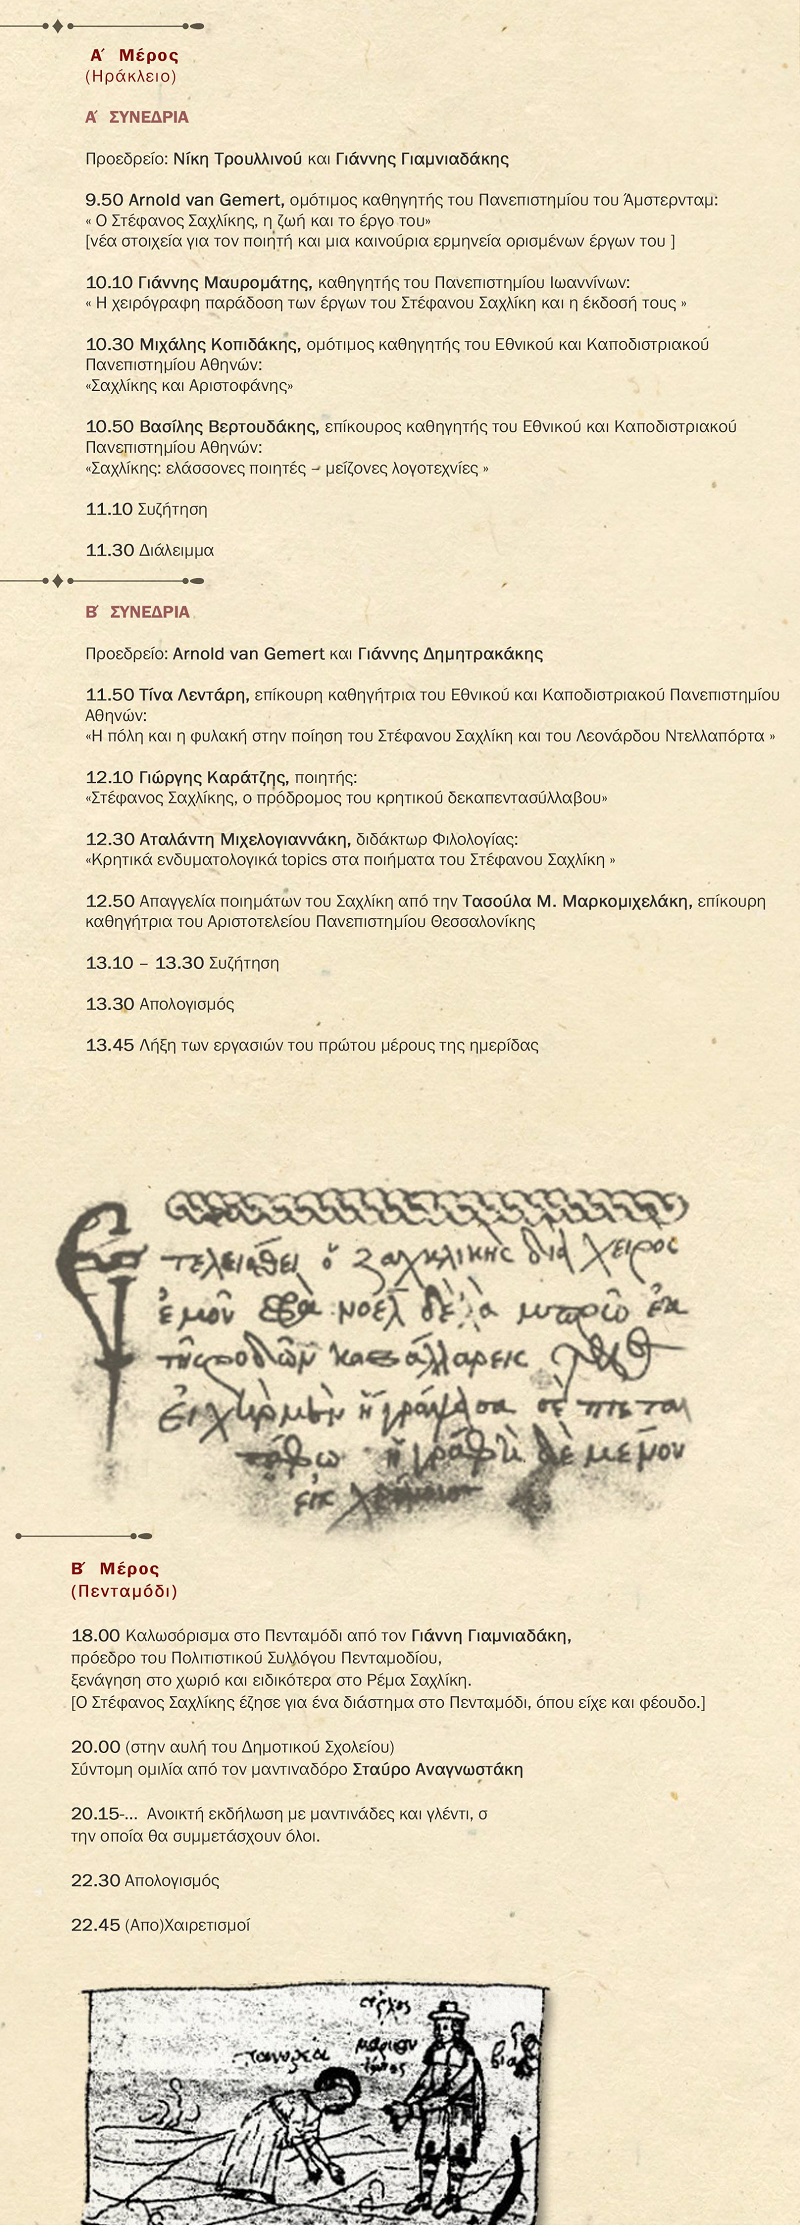 Α΄ Μέρος
(Ηράκλειο)
Α΄ ΣΥΝΕΔΡΙΑ
Προεδρείο: Νίκη Τρουλλινού και Γιάννης Γιαμνιαδάκης
9.50 Arnold van Gemert, ομότιμος καθηγητής του Πανεπιστημίου του Άμστερνταμ:
« Ο Στέφανος Σαχλίκης, η ζωή και το έργο του»
[νέα στοιχεία για τον ποιητή και μια καινούρια ερμηνεία ορισμένων έργων του ]
10.10 Γιάννης Μαυρομάτης, καθηγητής του Πανεπιστημίου Ιωαννίνων:
« Η χειρόγραφη παράδοση των έργων του Στέφανου Σαχλίκη και η έκδοσή τους »
10.30 Μιχάλης Κοπιδάκης, ομότιμος καθηγητής του Εθνικού και Καποδιστριακού
Πανεπιστημίου Αθηνών:
«Σαχλίκης και Αριστοφάνης»
10.50 Βασίλης Βερτουδάκης, επίκουρος καθηγητής του Εθνικού και Καποδιστριακού
Πανεπιστημίου Αθηνών:
«Σαχλίκης: ελάσσονες ποιητές – μείζονες λογοτεχνίες »
11.10 Συζήτηση
11.30 Διάλειμμα
Β΄ ΣΥΝΕΔΡΙΑ
Προεδρείο: Arnold van Gemert και Γιάννης Δημητρακάκης
11.50 Τίνα Λεντάρη, επίκουρη καθηγήτρια του Εθνικού και Καποδιστριακού Πανεπιστημίου
Αθηνών:
«Η πόλη και η φυλακή στην ποίηση του Στέφανου Σαχλίκη και του Λεονάρδου Ντελλαπόρτα »
12.10 Γιώργης Καράτζης, ποιητής:
«Στέφανος Σαχλίκης, ο πρόδρομος του κρητικού δεκαπεντασύλλαβου»
12.30 Αταλάντη Μιχελογιαννάκη, διδάκτωρ Φιλολογίας:
«Κρητικά ενδυματολογικά topics στα ποιήματα του Στέφανου Σαχλίκη »
12.50 Απαγγελία ποιημάτων του Σαχλίκη από την Τασούλα Μ. Μαρκομιχελάκη, επίκουρη
καθηγήτρια του Αριστοτελείου Πανεπιστημίου Θεσσαλονίκης
13.10 – 13.30 Συζήτηση
13.30 Απολογισμός
13.45 Λήξη των εργασιών του πρώτου μέρους της ημερίδας
Β΄ Μέρος
(Πενταμόδι)
18.00 Καλωσόρισμα στο Πενταμόδι από τον Γιάννη Γιαμνιαδάκη,
πρόεδρο του Πολιτιστικού Συλλόγου Πενταμοδίου,
ξενάγηση στο χωριό και ειδικότερα στο Ρέμα Σαχλίκη.
[Ο Στέφανος Σαχλίκης έζησε για ένα διάστημα στο Πενταμόδι, όπου είχε και φέουδο.]
20.00 (στην αυλή του Δημοτικού Σχολείου)
Σύντομη ομιλία από τον μαντιναδόρο Σταύρο Αναγνωστάκη
20.15-... Ανοικτή εκδήλωση με μαντινάδες και γλέντι, σ
την οποία θα συμμετάσχουν όλοι.
22.30 Απολογισμός
22.45 (Απο)Χαιρετισμοί